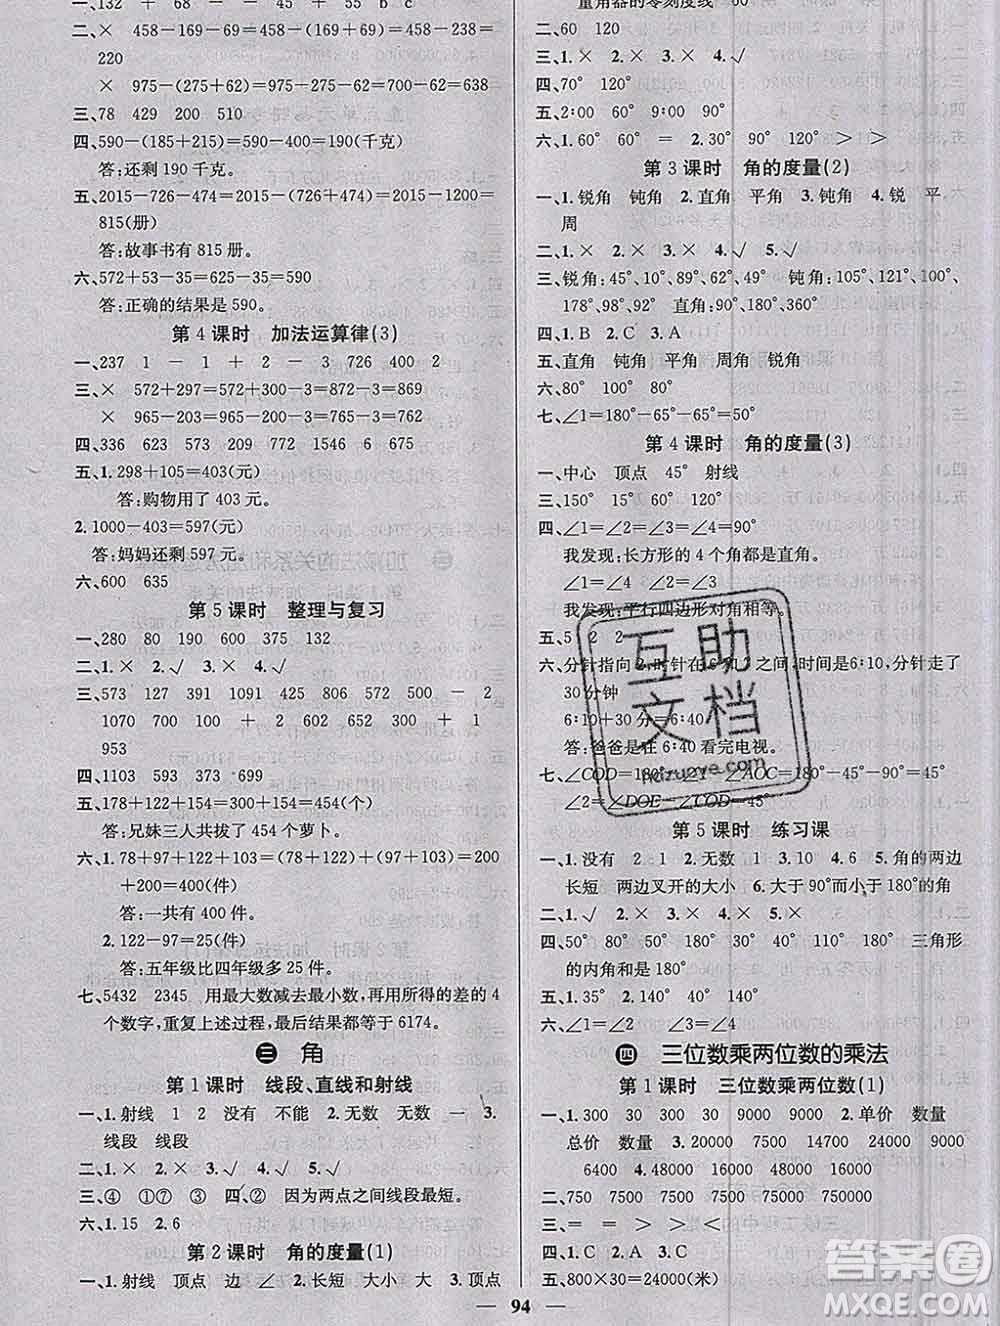 132 + 68 - - 45 55 b c
二、× 458-169-69=458-(169+69)=458-238=
220
× 975-(275+62)=975-275-62=700-62=638
三、78 429 200 510
四、590-(185+215)=590-400=190(千克)
答:还剩190千克。
五、2015-726-474=2015-(726+474)=2015-1200=
815(册)
答:故事书有815册。
六、572+53-35=625-35=590
答:正确的结果是590。
第4课时 加法运算律(3)
一、237 1 - 1 + 2 - 3 726 400 2
三、× 572+297=572+300-3=872-3=869
× 965-203=965-200-3=765-3=762
四、336 623 573 209 772 1456 675
五、1. 298+105=403(元)
答:购物用了403元。
2. 1000-403=597(元)
答:妈妈还剩597元。
六、600 635
第5课时 整理与复习
一、280 80 190 600 375 132
二、1.× 2.× 3.√ 4.× 5.√
三、573 127 391 1091 1030 500 - 2
1070 700 100 + 2 602 652 300 + 1
953
四、1103 593 373 699
五、178+122+154=300+154=454(个)
答:兄妹三人共拔了454个萝卜。
六、1. 78+97+122+103=(78+122)+(97+103)=200
+200=400(件)
答:一共有400件。
2. 122-97=25(件)
答:五年级比四年级多25件。
七、5432 2345 用最大数减去最小数,再用所得的差的4
个数字,重复上述过程,最后结果都等于6174。
三 角
第1课时 线段、直线和射线
一、1.射线 1 2 没有 不能 2.无数 无数 一 3.
线段 线段
二、1.× 2.× 3.√ 4.√ 5.√
三、④ ①⑦ ③ 四、② 因为两点之间线段最短。
六、1. 15 2. 6
第2课时 角的度量(1)
一、1.射线 顶点 边 ∠ 2.长短 大小 大 3.顶点
量角器的零刻度线 60
二、60 120
三、1.× 2.× 3.× 4.√
四、70° 120°
五、2:00 60° 9:00 90°
六、1. 60° 60° = 2. 30° 90° 120° > >
第3课时 角的度量(2)
一、1.锐角 钝角 2.直角 平角 3.钝角 4.锐 平
周
二、1.× 2.× 3.× 4.√ 5.√
三、锐角:45°、10°、89°、62°、25° 钝角:105°、121°、100°、
178°、98°、92° 直角:90°、180°、360°
四、1. B 2. C 3. A
五、直角 钝角 平角 周角 锐角
六、80° 100° 80°
七、∠1=180°-65°-65°=50°
第4课时 角的度量(3)
一、中心 顶点 45° 射线
三、150° 15° 60° 120°
四、∠1=∠2=∠3=∠4=90°
我发现:长方形的4个角都是直角。
∠1=∠4 ∠2=∠3
我发现:平行四边形对角相等。
五、5 2 2
六、分针指向2,时针在6和7之间,时间是6:10,分针走了
30分钟
6:10+30分=6:40
答:爸爸是在6:40看完电视。
七、∠COD=180° ∠AOC=180°-45°-90°=45°
∠2=∠DOE-∠COD=45°
第5课时 练习课
一、1.没有 2 1 2.无数 3. 10 4. 6 5.角的两边
长短 两边叉开的大小 6.大于90°而小于180°的角
二、1.√ 2.× 3.× 4.√
四、50° 80° 50° 180° 30° 40° 110° 180° 三角形
的内角和是180°
五、1. 35° 2. 140° 40° 140°
六、> < > > < =
四 三位数乘两位数的乘法
第1课时 三位数乘两位数(1)
一、1. 300 30 300 9000 9000 2.单价 数量
总价 数量 3. 20000 7500 14400 7200 9000
6400 4. 48000 16000 48000 16000
二、750 750 7500 7500 7500 75000
三、= = > = > <
四、1. C 2. A 3. C
五、800×30=24000(米)
94
互助
文档
huzuoye.com
答案圈
MXQE.COM